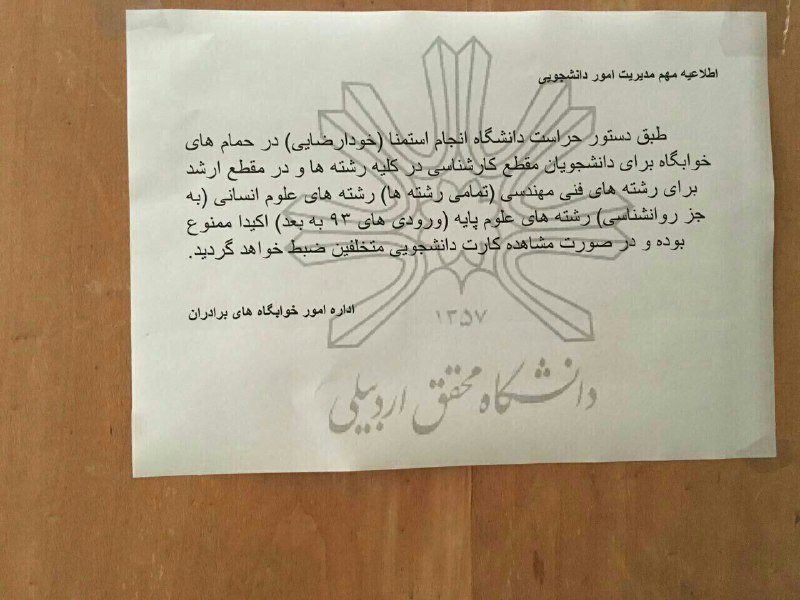 اطلاعیه مهم مدیریت امور دانشجویی
طبق دستور حراست دانشگاه انجام استمنا (خودارضایی) در حمام های
خوابگاه برای دانشجویان مقطع کارشناسی در کلیه رشته ها و در مقطع ارشد
برای رشته های فنی مهندسی (تمامی رشته ها) رشته های علوم انسانی (به
جز روانشناسی) رشته های علوم پایه (ورودی های ۹۳ به بعد) اکیدا ممنوع
بوده و در صورت مشاهده کارت دانشجویی متخلفین ضبط خواهد گردید.
اداره امور خوابگاه های برادران
۱۳۵۷
دانشگاه محقق اردبیلی